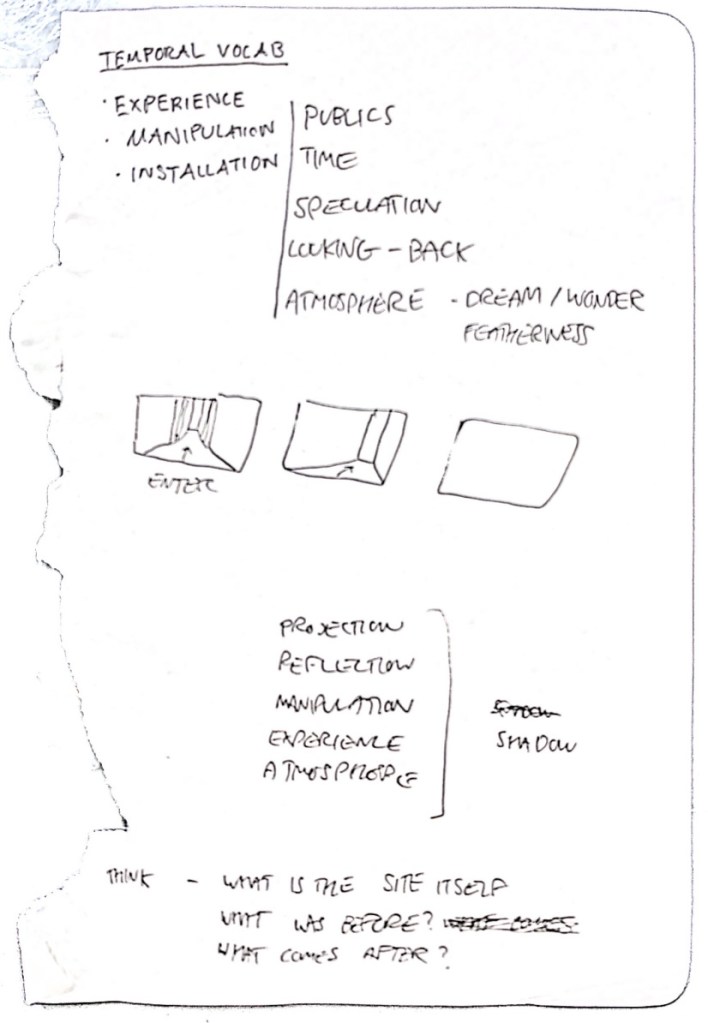 TEMPORAL VOCAB
· EXPERIENCE
· MANIPULATION
· INSTALLATION
PUBLICS
TIME
SPECULATION
LOOKING - BACK
ATMOSPHERE - DREAM / WONDER
FEATHERNESS
ENTER
PROJECTION
REFLECTION
MANIPULATION
EXPERIENCE
ATMOSPHERE
SHADOW
THINK - WHAT IS THE SITE ITSELF
WHAT WAS BEFORE?
WHAT COMES AFTER?